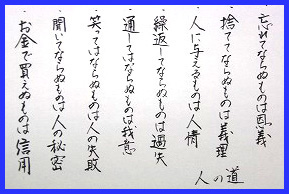 ・忘れてならぬものは恩義
・捨ててならぬものは義理
・人に与えるものは人情
・繰返してならぬものは過失
・通してはならぬものは我意
・笑ってはならぬものは人の失敗
・聞いてならぬものは人の秘密
・お金で買えぬものは信用
人の道